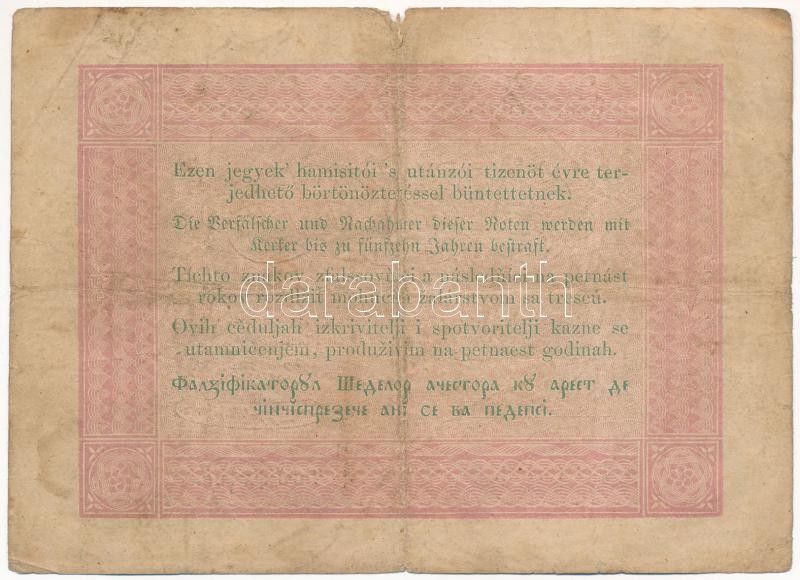 Ezen jegyek' hamisitói 's utánzói tizenöt évre ter-
jedhető börtönöztetéssel büntettetnek.
Die Verfälscher und Nachahmer dieser Noten werden mit
Kerker bis zu fünfzehn Jahren bestraft.
Tíchto znakov zfalšovníci a následňíci na petnást
rokov žalárstvom sa trescú.
darabanth
Ovih cĕduljah izkrivitelji i spotvoritelji kazne se
utamnicenjem, produživim na petnaest godinah.
Фалзіфікаторꙋл Шеделор ачестора кꙋ арест де
чінчіспрезече ані се ва педепсі.